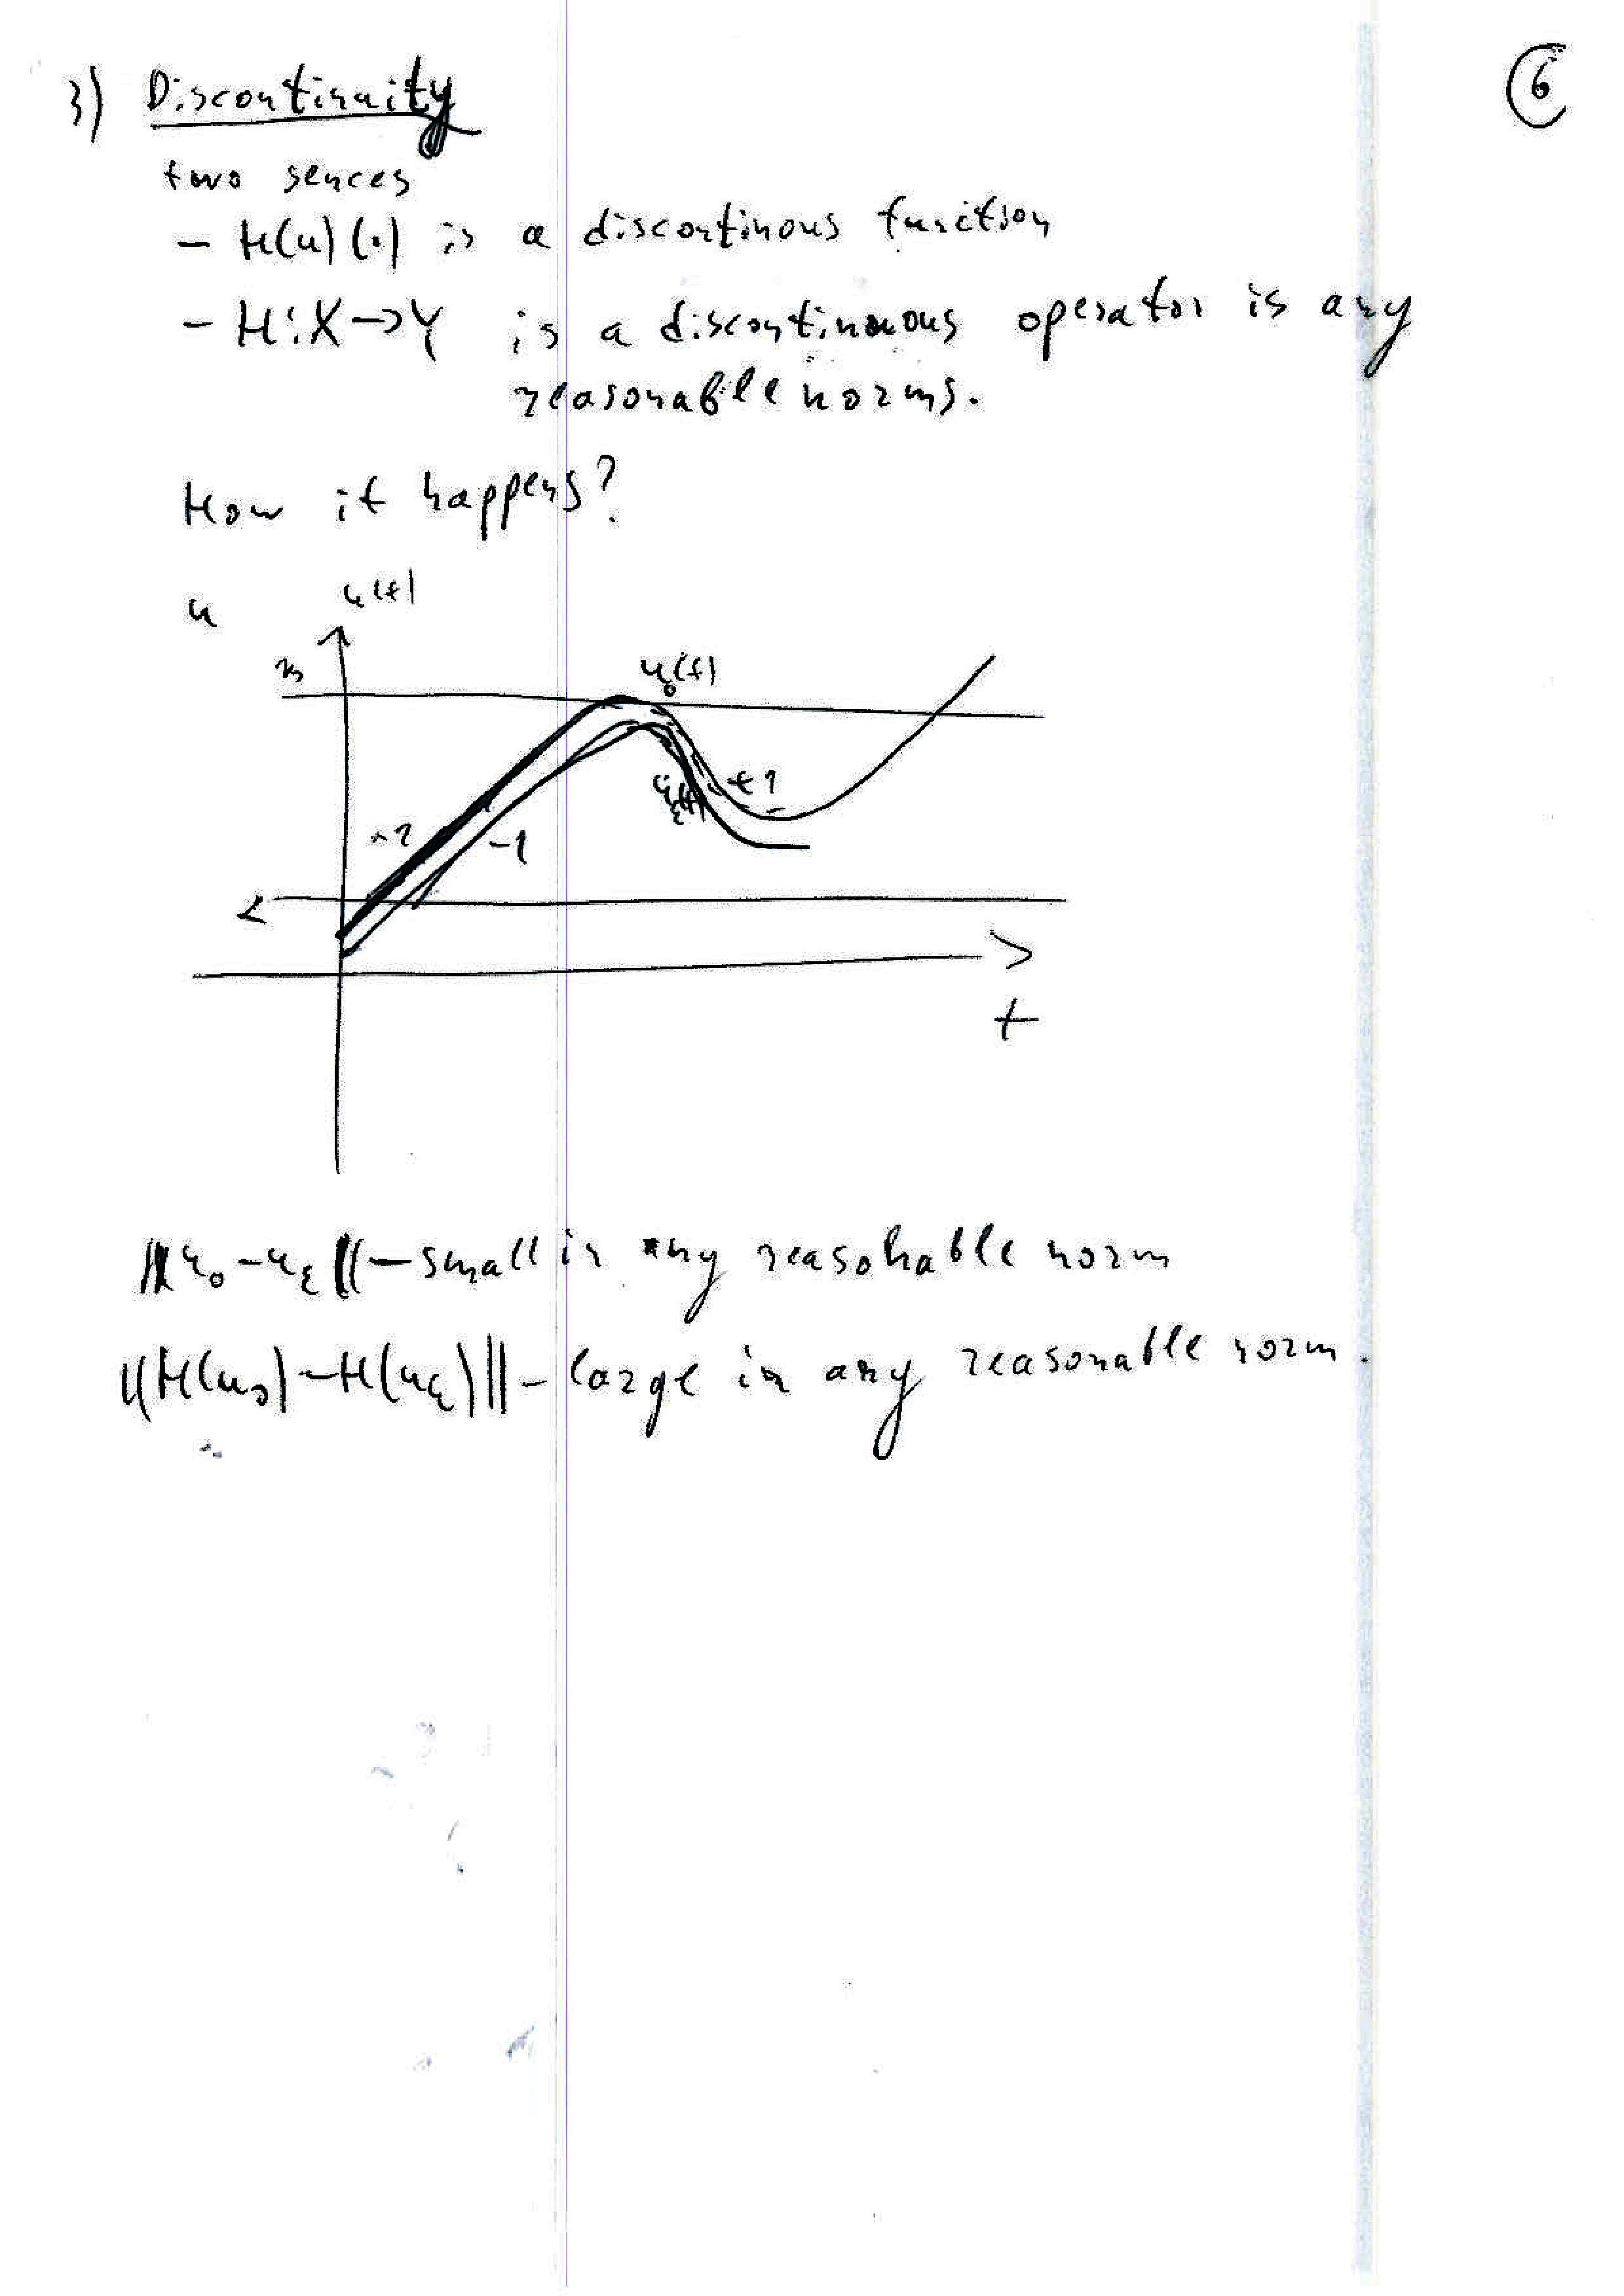 3) Discontinuity
6
two sences
- H(u)(·) is a discontinous function
- H: X → Y is a discontinuous operator is any
reasonable norms.
How it happens?
u u(t)
u₀(t)
+1
-1
t
||u₀-u_ε|| - small in any reasonable norm
||H(u₀)-H(u_ε)|| - large in any reasonable norm.